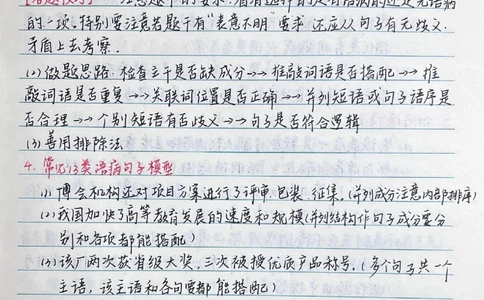 的一项。特别要注意若题干有"表意不明"要求,还应从句子有无歧义、
矛盾上去考察.
(2)做题思路:检查主干是否缺成分→推敲词语是否搭配→推
敲词语是否重复→关联词位置是否正确→并列短语或句子语序是
否合理→个别短语有否歧义→句子是否符合逻辑
(3)善用排除法
4. 常见15类语病句子模型
(1)博会机构还对项目方案进行了评审、包装、征集。(并列成分注意内部排序)
(2)我国加快了高等教育发展的速度和规模(并列结构作句子成分要分
别和各项都能搭配)
(3)该厂两次获省级大奖,三次被授优质产品称号。(多个句子共一个
主语,该主语和各句要都能搭配)